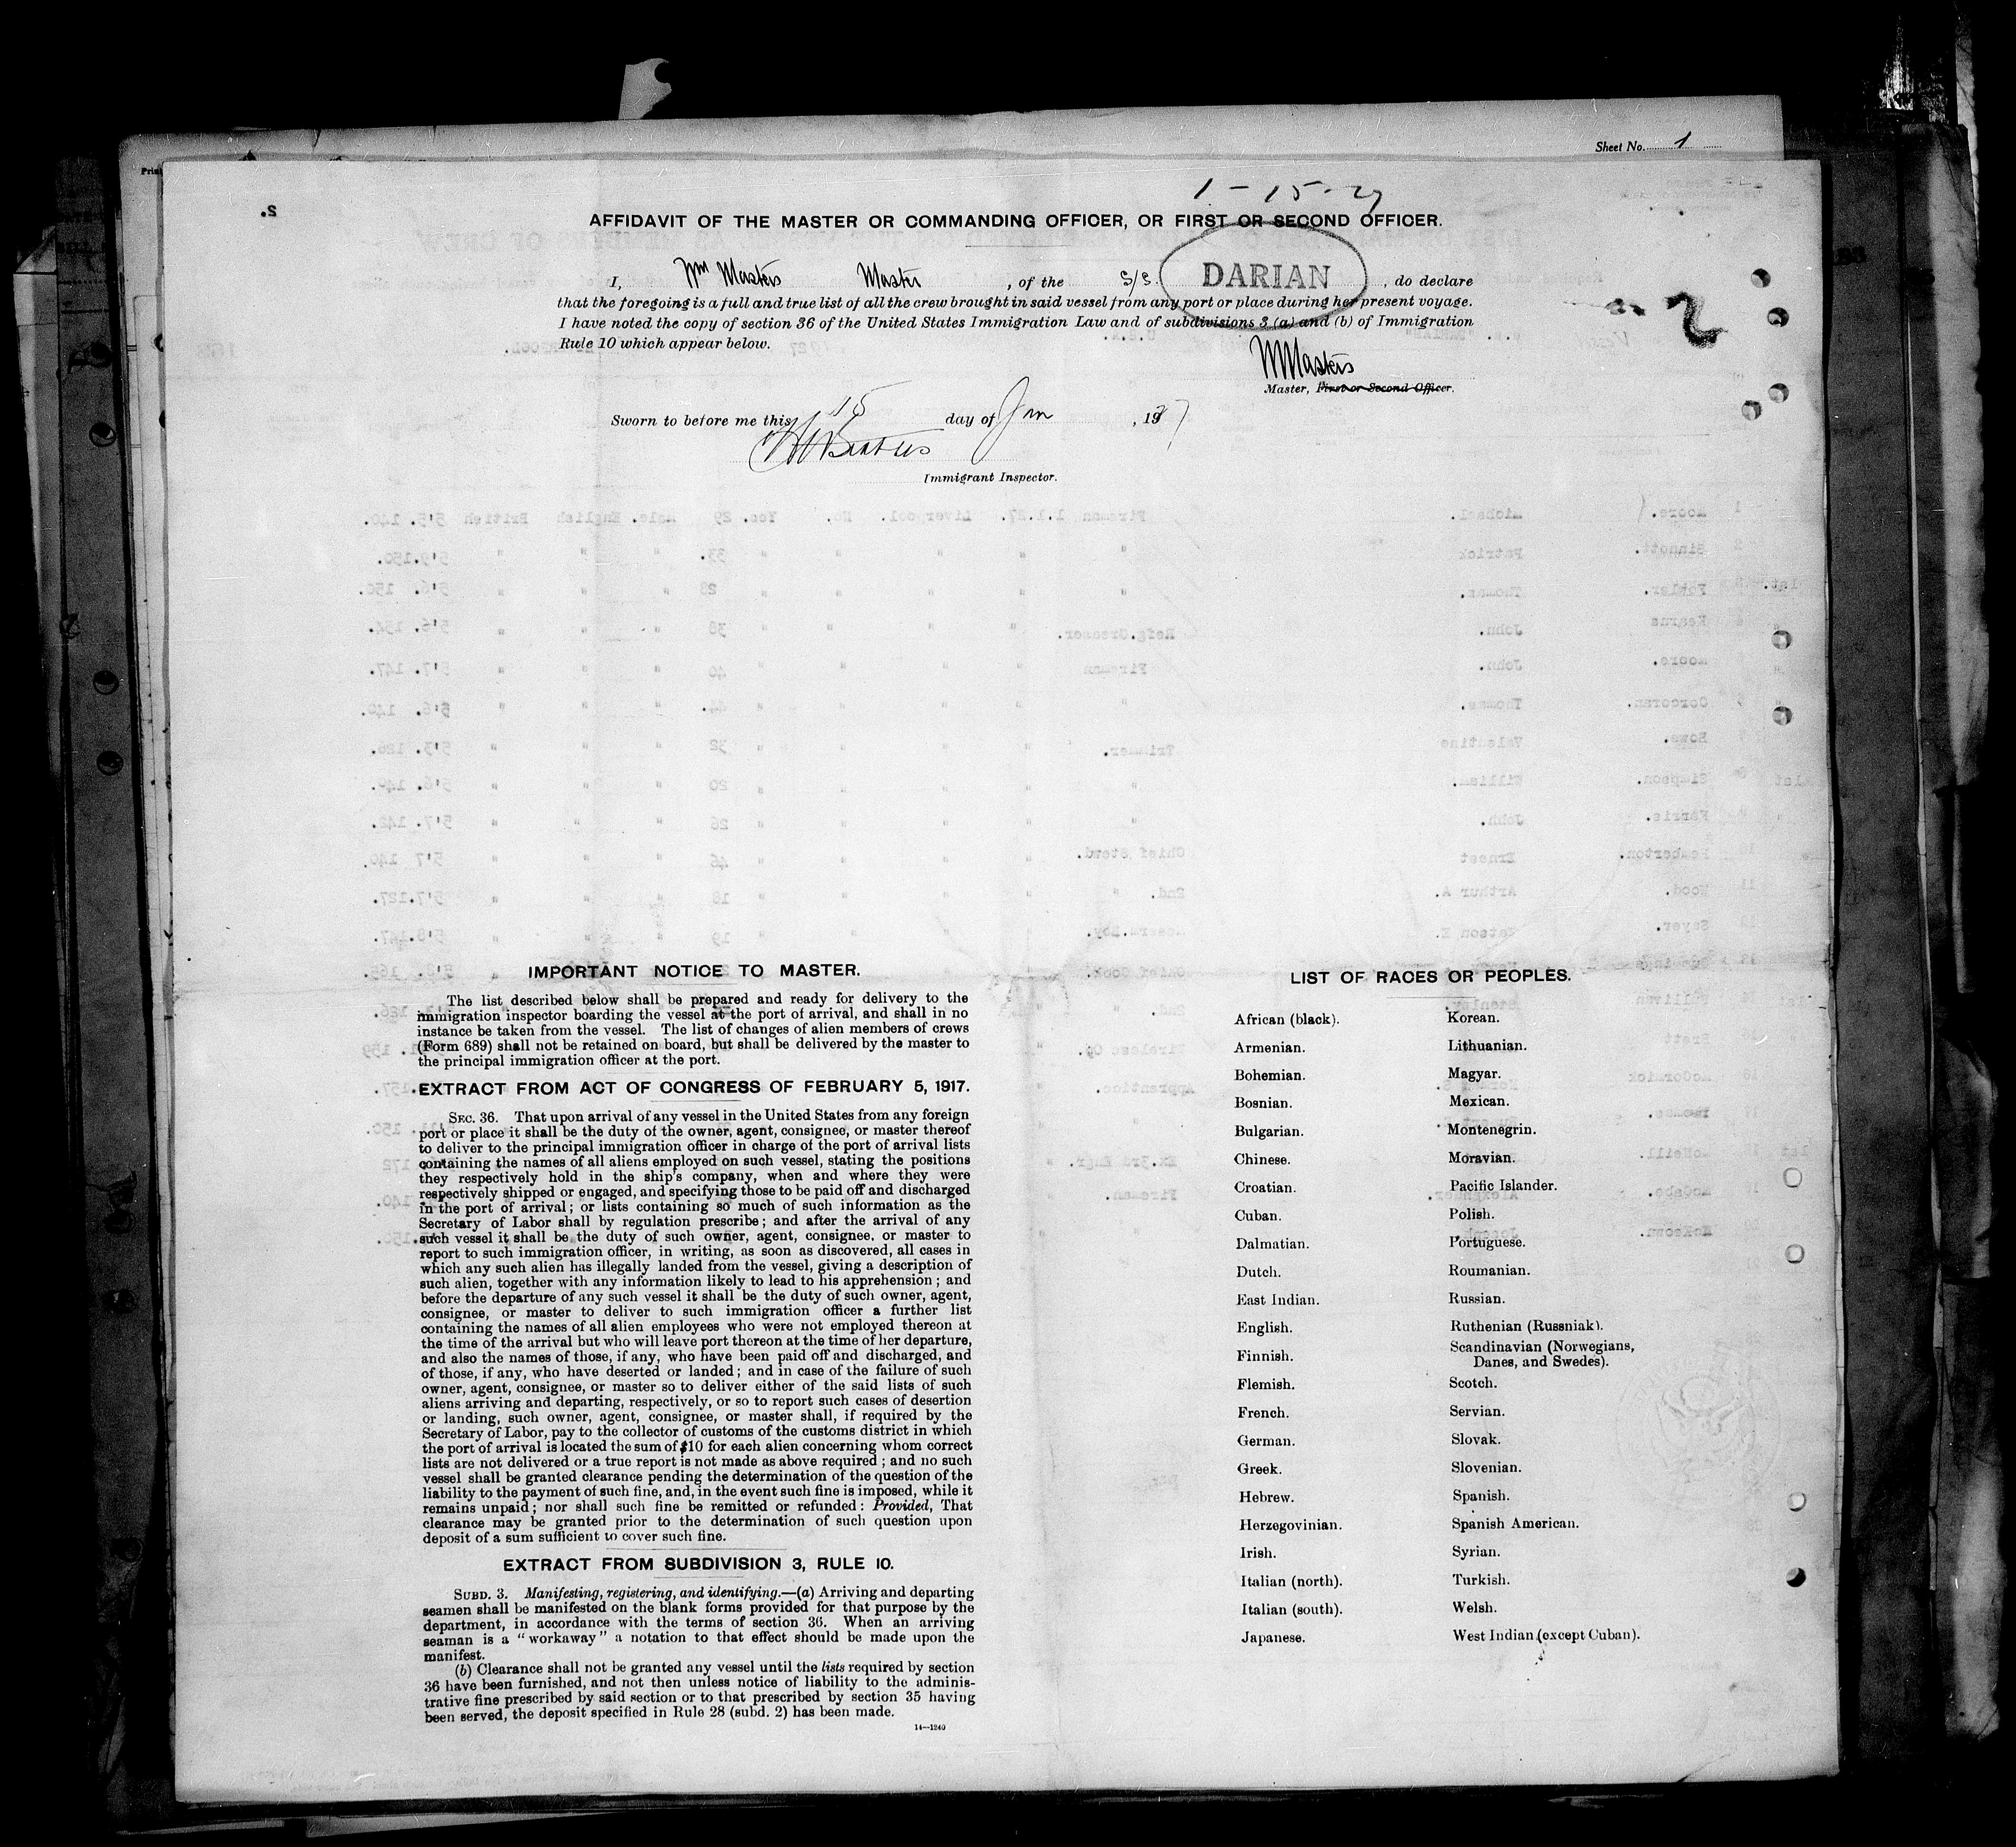 Sheet No. 1
1-15-27
AFFIDAVIT OF THE MASTER OR COMMANDING OFFICER, OR FIRST OR SECOND OFFICER.
I, Wm Masters Master, of the S/S. DARIAN, do declare
that the foregoing is a full and true list of all the crew brought in said vessel from any port or place during her present voyage.
I have noted the copy of section 36 of the United States Immigration Law and of subdivisions 3 (a) and (b) of Immigration
Rule 10 which appear below.
2
WMasters
Master, First or Second Officer.
Sworn to before me this 15 day of Jan, 1927
Immigrant Inspector.
IMPORTANT NOTICE TO MASTER.
The list described below shall be prepared and ready for delivery to the
immigration inspector boarding the vessel at the port of arrival, and shall in no
instance be taken from the vessel. The list of changes of alien members of crews
(Form 689) shall not be retained on board, but shall be delivered by the master to
the principal immigration officer at the port.
EXTRACT FROM ACT OF CONGRESS OF FEBRUARY 5, 1917.
SEC. 36. That upon arrival of any vessel in the United States from any foreign
port or place it shall be the duty of the owner, agent, consignee, or master thereof
to deliver to the principal immigration officer in charge of the port of arrival lists
containing the names of all aliens employed on such vessel, stating the positions
they respectively hold in the ship's company, when and where they were
respectively shipped or engaged, and specifying those to be paid off and discharged
in the port of arrival; or lists containing so much of such information as the
Secretary of Labor shall by regulation prescribe; and after the arrival of any
such vessel it shall be the duty of such owner, agent, consignee, or master to
report to such immigration officer, in writing, as soon as discovered, all cases in
which any such alien has illegally landed from the vessel, giving a description of
such alien, together with any information likely to lead to his apprehension; and
before the departure of any such vessel it shall be the duty of such owner, agent,
consignee, or master to deliver to such immigration officer a further list
containing the names of all alien employees who were not employed thereon at
the time of the arrival but who will leave port thereon at the time of her departure,
and also the names of those, if any, who have been paid off and discharged, and
of those, if any, who have deserted or landed; and in case of the failure of such
owner, agent, consignee, or master so to deliver either of the said lists of such
aliens arriving and departing, respectively, or so to report such cases of desertion
or landing, such owner, agent, consignee, or master shall, if required by the
Secretary of Labor, pay to the collector of customs of the customs district in which
the port of arrival is located the sum of $10 for each alien concerning whom correct
lists are not delivered or a true report is not made as above required; and no such
vessel shall be granted clearance pending the determination of the question of the
liability to the payment of such fine, and, in the event such fine is imposed, while it
remains unpaid; nor shall such fine be remitted or refunded: Provided, That
clearance may be granted prior to the determination of such question upon
deposit of a sum sufficient to cover such fine.
EXTRACT FROM SUBDIVISION 3, RULE 10.
SUBD. 3. Manifesting, registering, and identifying.—(a) Arriving and departing
seamen shall be manifested on the blank forms provided for that purpose by the
department, in accordance with the terms of section 36. When an arriving
seaman is a "workaway" a notation to that effect should be made upon the
manifest.
(b) Clearance shall not be granted any vessel until the lists required by section
36 have been furnished, and not then unless notice of liability to the adminis-
trative fine prescribed by said section or to that prescribed by section 35 having
been served, the deposit specified in Rule 28 (subd. 2) has been made.
14—1240
LIST OF RACES OR PEOPLES.
African (black).
Armenian.
Bohemian.
Bosnian.
Bulgarian.
Chinese.
Croatian.
Cuban.
Dalmatian.
Dutch.
East Indian.
English.
Finnish.
Flemish.
French.
German.
Greek.
Hebrew.
Herzegovinian.
Irish.
Italian (north).
Italian (south).
Japanese.
Korean.
Lithuanian.
Magyar.
Mexican.
Montenegrin.
Moravian.
Pacific Islander.
Polish.
Portuguese.
Roumanian.
Russian.
Ruthenian (Russniak).
Scandinavian (Norwegians,
Danes, and Swedes).
Scotch.
Servian.
Slovak.
Slovenian.
Spanish.
Spanish American.
Syrian.
Turkish.
Welsh.
West Indian (except Cuban).